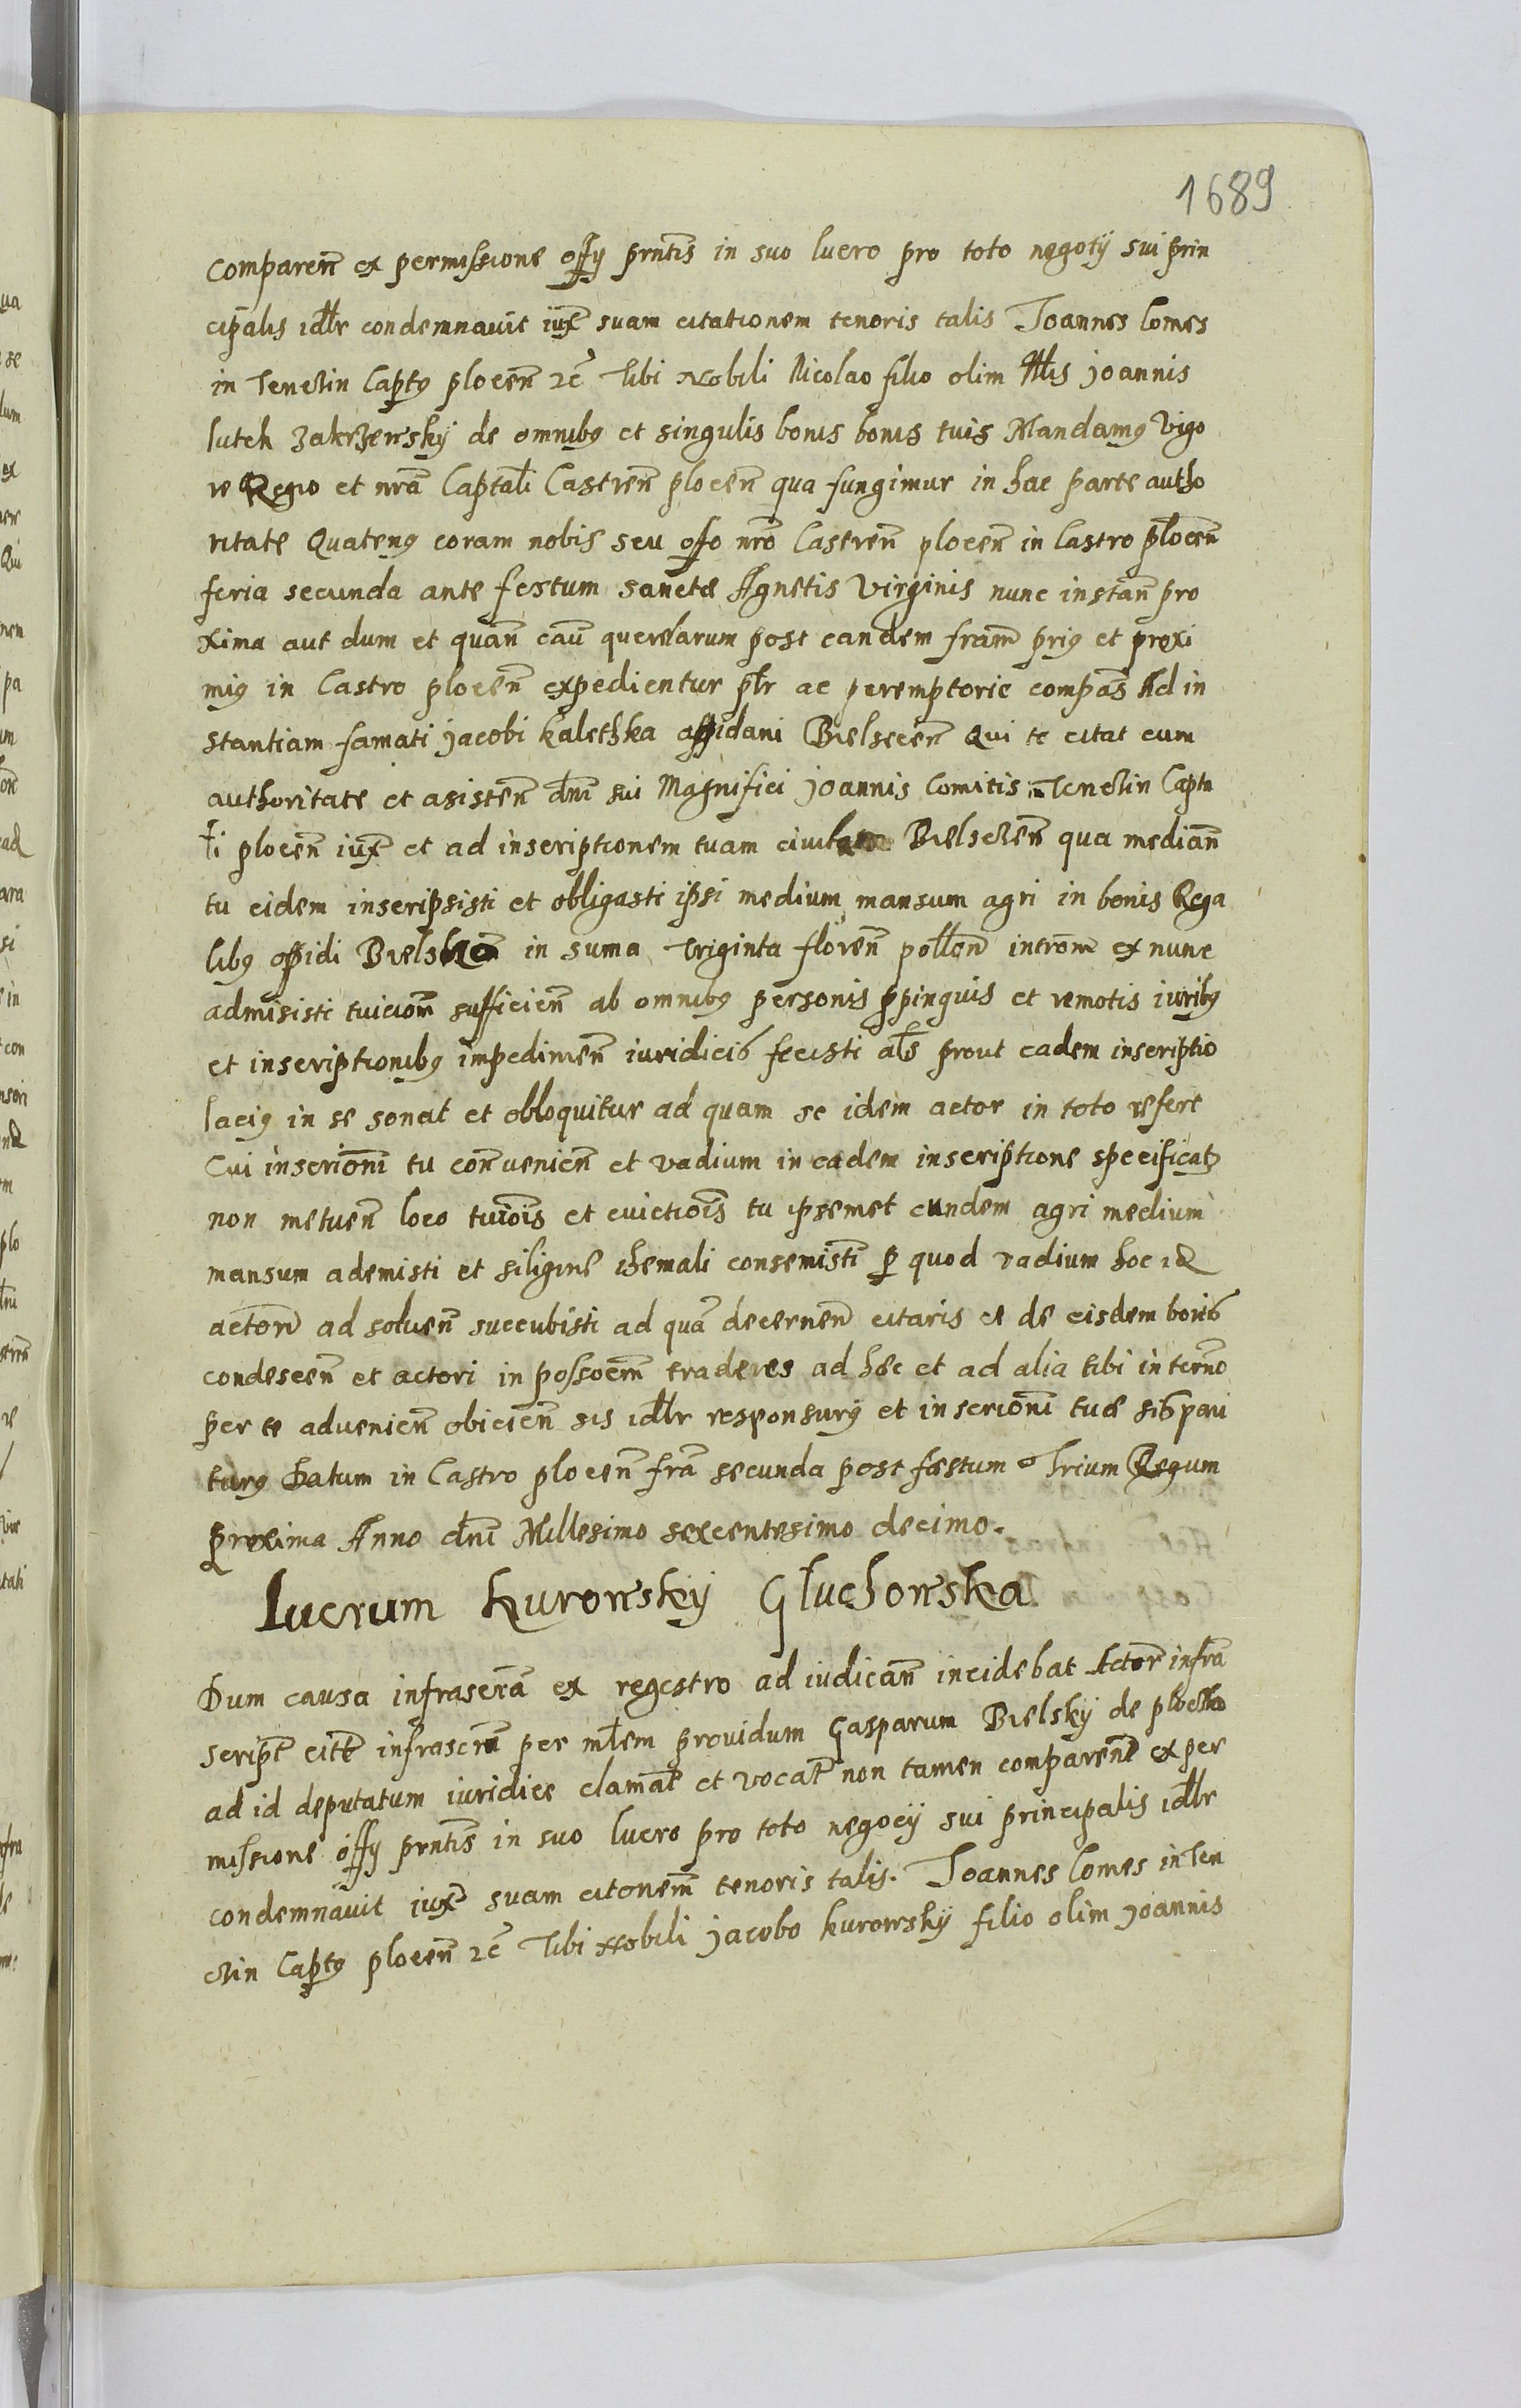 1689
Comparen̄ ex permissione offÿ prn̄tis in suo lucro pro toto negotÿ sui prin
cipalis idl̄r condemnauit iux̄ suam citationem tenoris talis Joannes Comes
in Tenczin Capt9 plocen̄ zc̄ Tibi Nobili Nicolao filio olim Nl̄is Joannis
Lutek Zakrzewskÿ de omnib9 et singulis bonis bonis tuis Mandam9 vigo
re Regio et nr̄a Captal̄i Castren̄ plocen̄ qua fungimur in hac parte autho
ritate Quaten9 coram nobis seu offo nr̄o Castren̄ plocen̄ in Castro plocen̄
feria secunda ante festum sanctæ Agnetis Virginis nunc instan̄ pro
xima aut dum et quan̄ cau̅ querelarum post eandem fram̄ pri9 et proxi
mi9 in Castro plocen̄ expedientur pl̄r ac peremptorie compas̄ Ad in
stantiam famati Jacobi Kalethka oppidani Bielscen̄ Qui te citat cum
authoritate et asisten̄ dn̄i sui Magnifici Joannis Comitis in Tenczin Capta
ti plocen̄ iux̄ et ad inscriptionem tuam Bielscen̄ qua median̄
tu eidem inscripsisti et obligasti ipsi medium mansum agri in bonis Rega
lib9 oppidi in suma Triginta floren̄ pollon̄ introm̄ ex nunc
admisisti tuiciom̄ sufficien̄ ab omnib9 personis ppinquis et remotis iurib9
et inscriptionib9 impedimen̄ iuridicis fecisti al̄s prout eadem inscriptio
laci9 in se sonat et obloquitur ad quam se idem actor in toto refert
Cui inscrion̄i tu con̄uenien̄ et vadium in eadem inscriptione specificat
non metuen̄ loco tuiōis et euictiōis tu ipsemet eundem agri medium
mansum ademisti et siligine ihemali consemisti p quod vadium hoc id
actorī ad soluen̄ succubisti ad qua̅ decernen̄ citaris et de eisdem bonis
condescen̄ et actori in possoem̄ traderes ad hæc et ad alia tibi in tern̄o
per te aduenien̄ obicien̄ sis idl̄r responsur9 et inscrion̄i tuæ sispari
tur9 Datum in Castro plocen̄ fra̅ secunda post fæstum Trium Regum
proxima Anno dn̄i Millesimo sexcentesimo decimo.
Lucrum Kurowskÿ Gluchowska
Dum causa infrascra̅ ex regestro ad iudican̄ incidebat Actor̄ infra
script̄ citt̄ infrascr̄ per ml̄em prouidum Gasparum Bielskÿ de plocko
ad id deputatum iuridice clamat̄ et vocat̄ non tamen comparen̄ ex per
missione offÿ prn̄tis in suo lucro pro toto negocÿ sui principalis idl̄r
condemnauit iux̄ suam citonem̄ tenoris talis. Joannes Comes in Ten
czin Capt9 plocen̄ zc̄ Tibi Nobili Jacobo Kurowskÿ filio olim Joannis